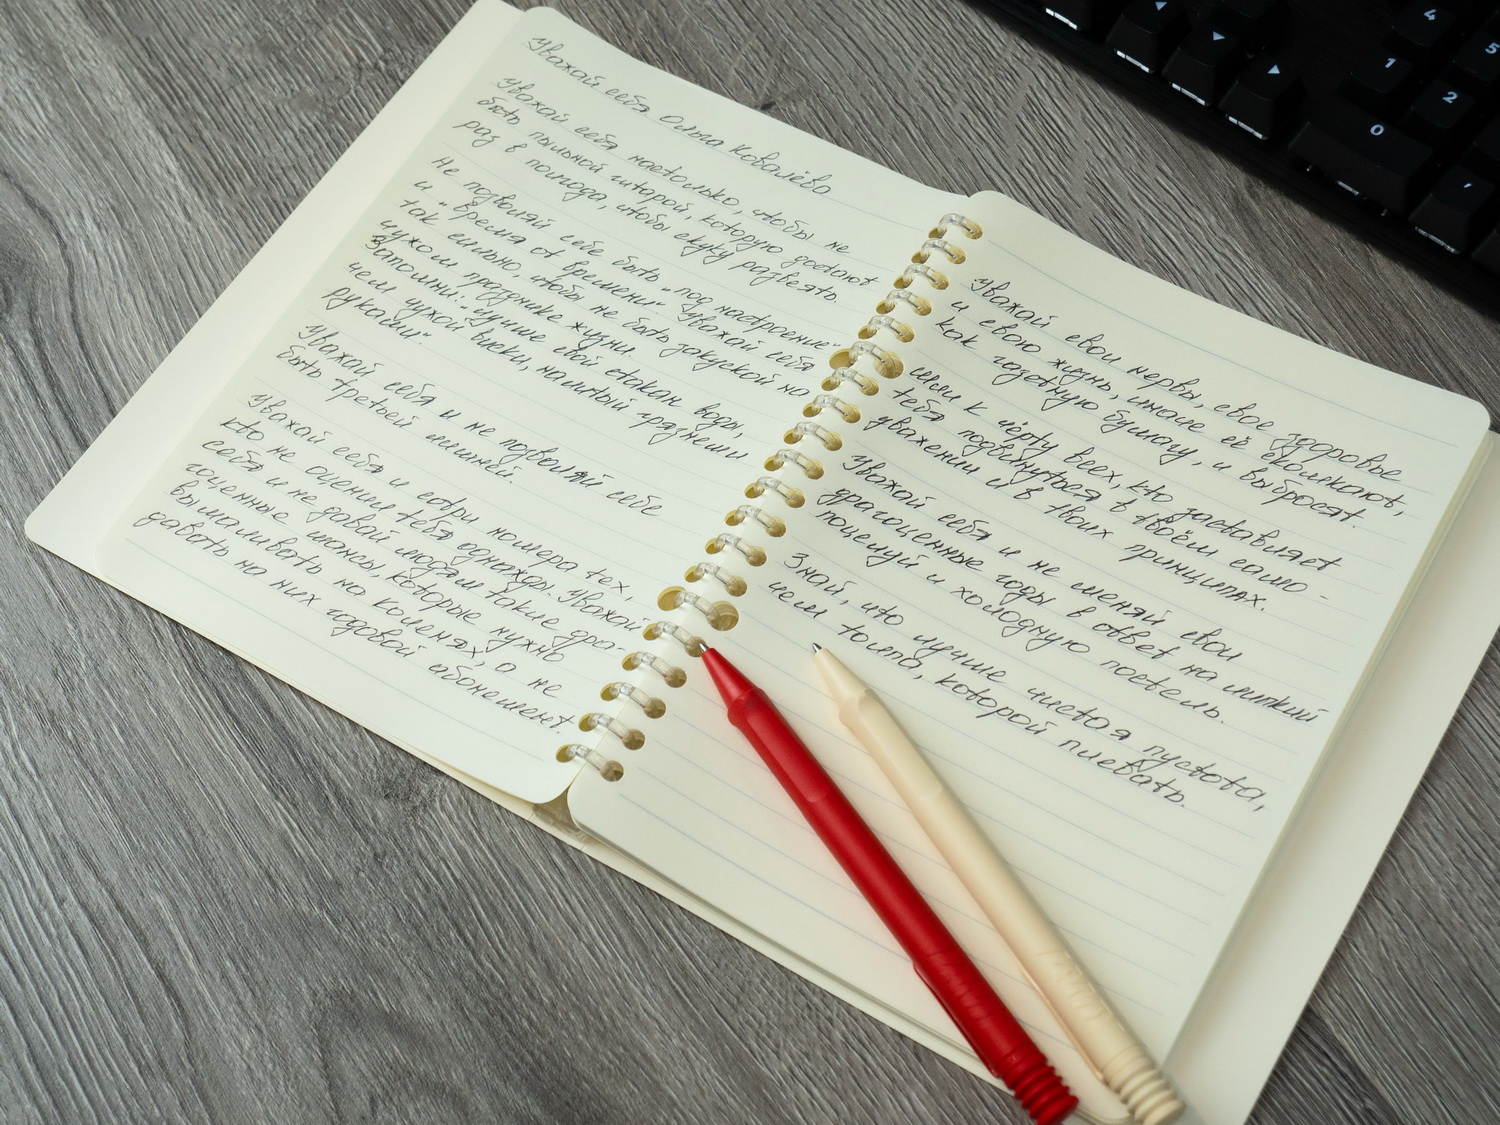 Уважай себя Ольга Ковалёва
Уважай себя настолько, чтобы не
быть пыльной гитарой, которую достают
раз в полгода, чтобы скуку развеять.
Не позволяй себе быть „под настроение"
и „время от времени" Уважай себя
так сильно, чтобы не быть закуской на
чужом празднике жизни.
Запомни: „лучше свой стакан воды,
чем чужой виски, налитый грязными
руками"
Уважай себя и не позволяй себе
быть третьей лишней.
Уважай себя и сотри номера тех,
кто не оценил тебя однажды. Уважай
себя и не давай людям такие дра-
гоценные шансы, которые нужно
вымаливать на коленях, а не
давать на них годовой абонемент.
Уважай свои нервы, свое здоровье
и свою жизнь, иначе её скомкают,
как газетную бумагу, и выбросят.
Шли к чёрту всех, кто заставляет
тебя подвинуться в твоём само-
уважении и в твоих принципах.
Уважай себя и не меняй свои
драгоценные годы в ответ на липкий
поцелуй и холодную постель.
Знай, что лучше чистая пустота,
чем толпа, которой плевать.
4
5
1
2
0